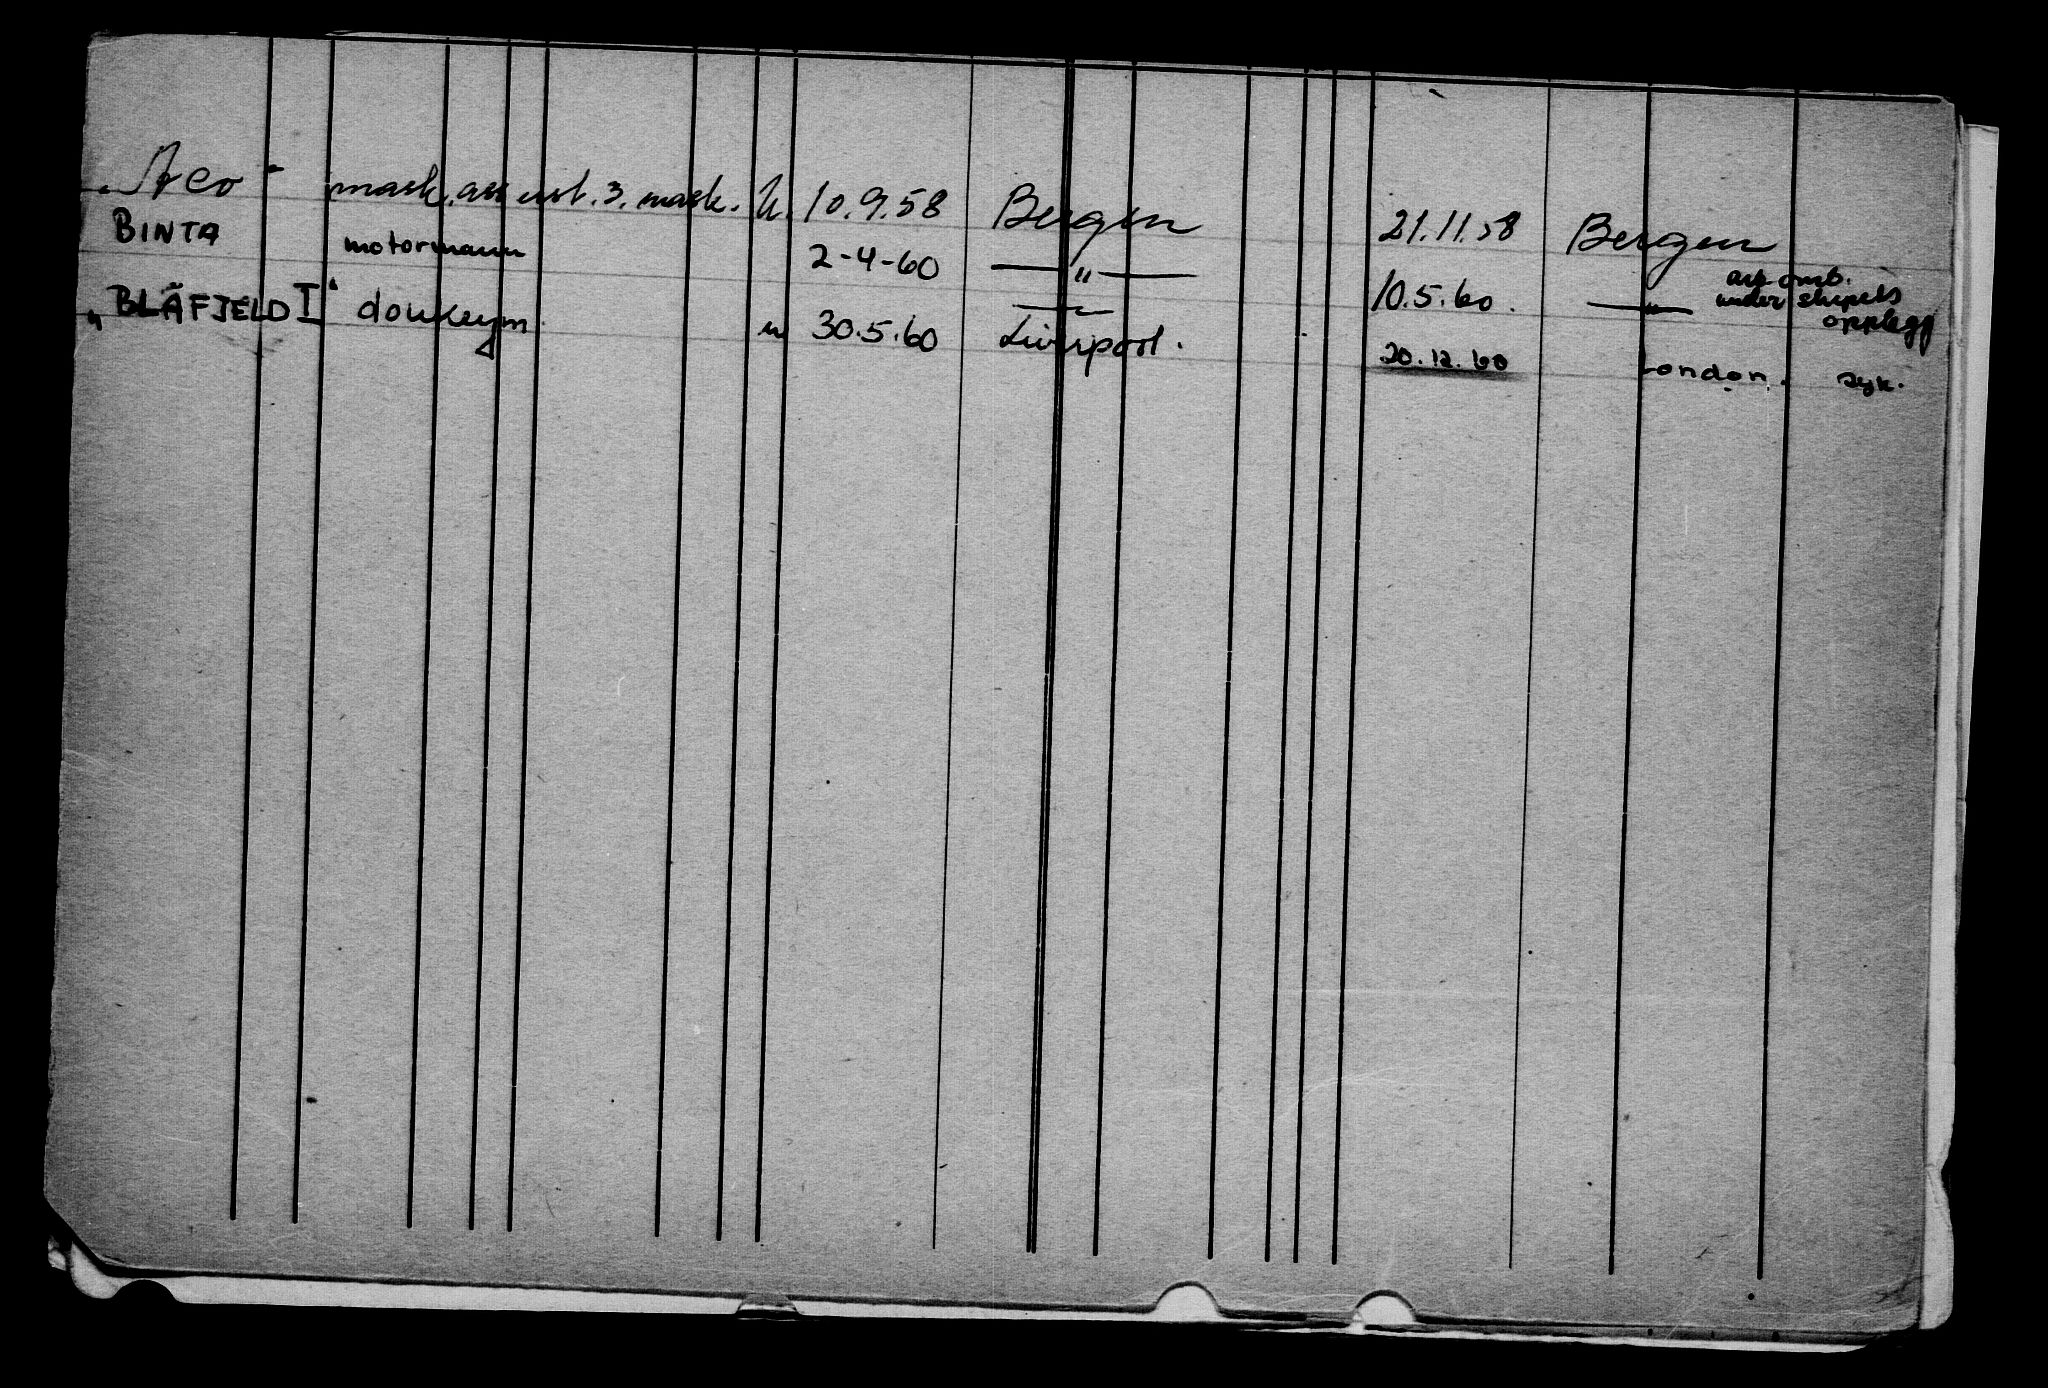 "Aco" mask.ass utst. 3. mask. U. 10.9.58 Bergen 21.11.58 Bergen
BINTA motormann 2-4-60 — " — 10.5.60. — " — arb. omb. under skipets opplegg
"BLÅFJELD I" donkeym. u 30.5.60 Liverpool. 20.12.60 London. syk.